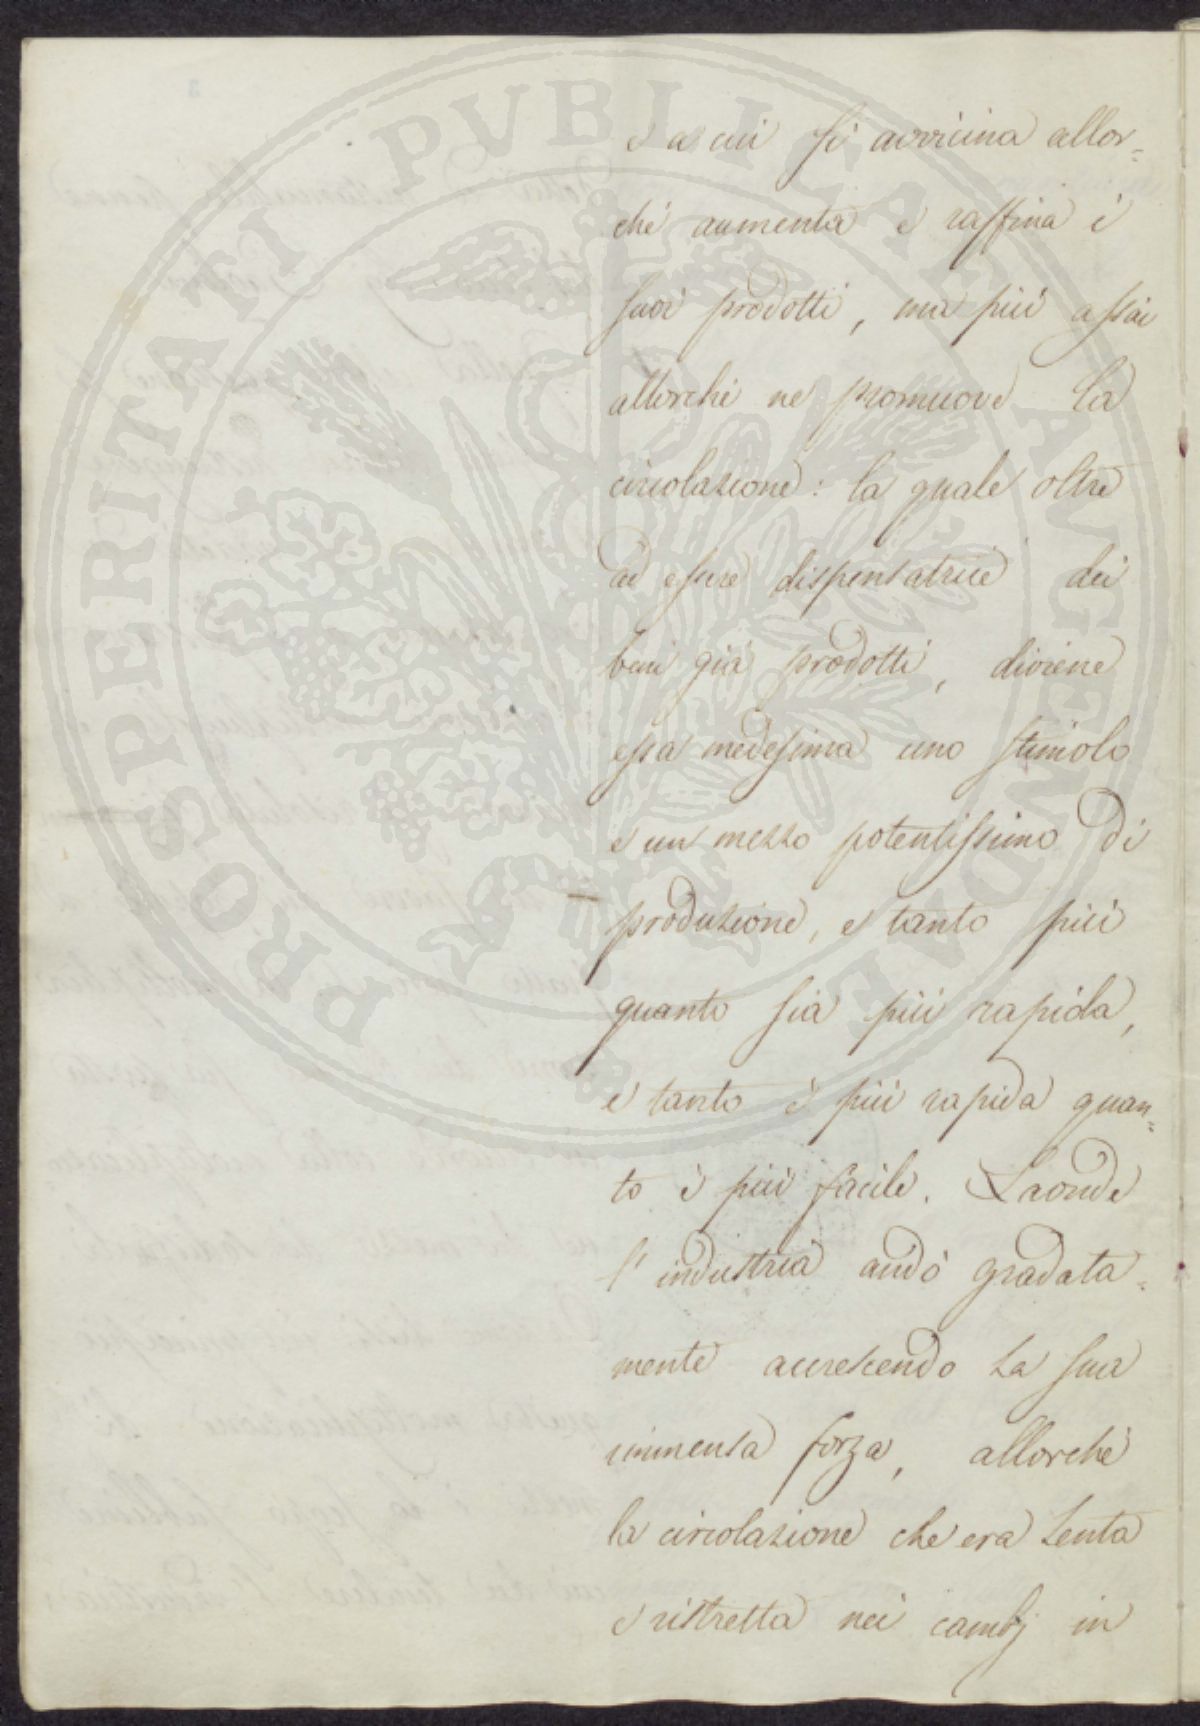 e a cui si avvicina allor=
chè aumenta e raffina i
suoi prodotti, ma più assai
allorchè ne promuove la
circolazione: la quale oltre
ad essere dispensatrice dei
beni già prodotti, diviene
essa medesima uno stimolo
e un mezzo potentissimo di
produzione, e tanto più
quanto sia più rapida,
e tanto è più rapida quan=
to è più facile. Laonde
l'industria andò gradata=
mente accrescendo la sua
immensa forza, allorchè
la circolazione che era lenta
e ristretta nei cambj in
PROSPERITATI PVBLICAE AVGENDAE